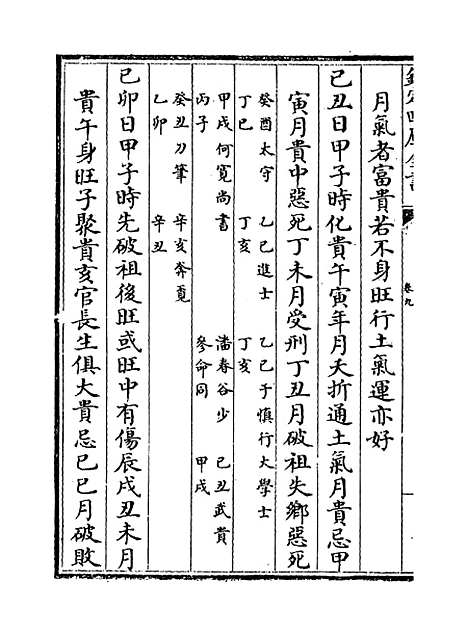 欽定四庫全書
卷九
月氣者富貴若不身旺行土氣運亦好
己丑日甲子時化貴午寅年月夭折通土氣月貴忌甲
寅月貴中惡死丁未月受刑丁丑月破祖失鄉惡死
癸酉太守 乙巳進士 乙巳于慎行大學士
丁巳 丁亥 丁亥
甲戌何寬尚書 潘春谷少 己丑武貴
丙子 參命同 甲戌
癸丑刀筆 辛亥奔覔
乙卯 辛丑
己卯日甲子時先破祖後旺或旺中有傷辰戌丑未月
貴午身旺子聚貴亥官長生俱大貴忌己巳月破敗